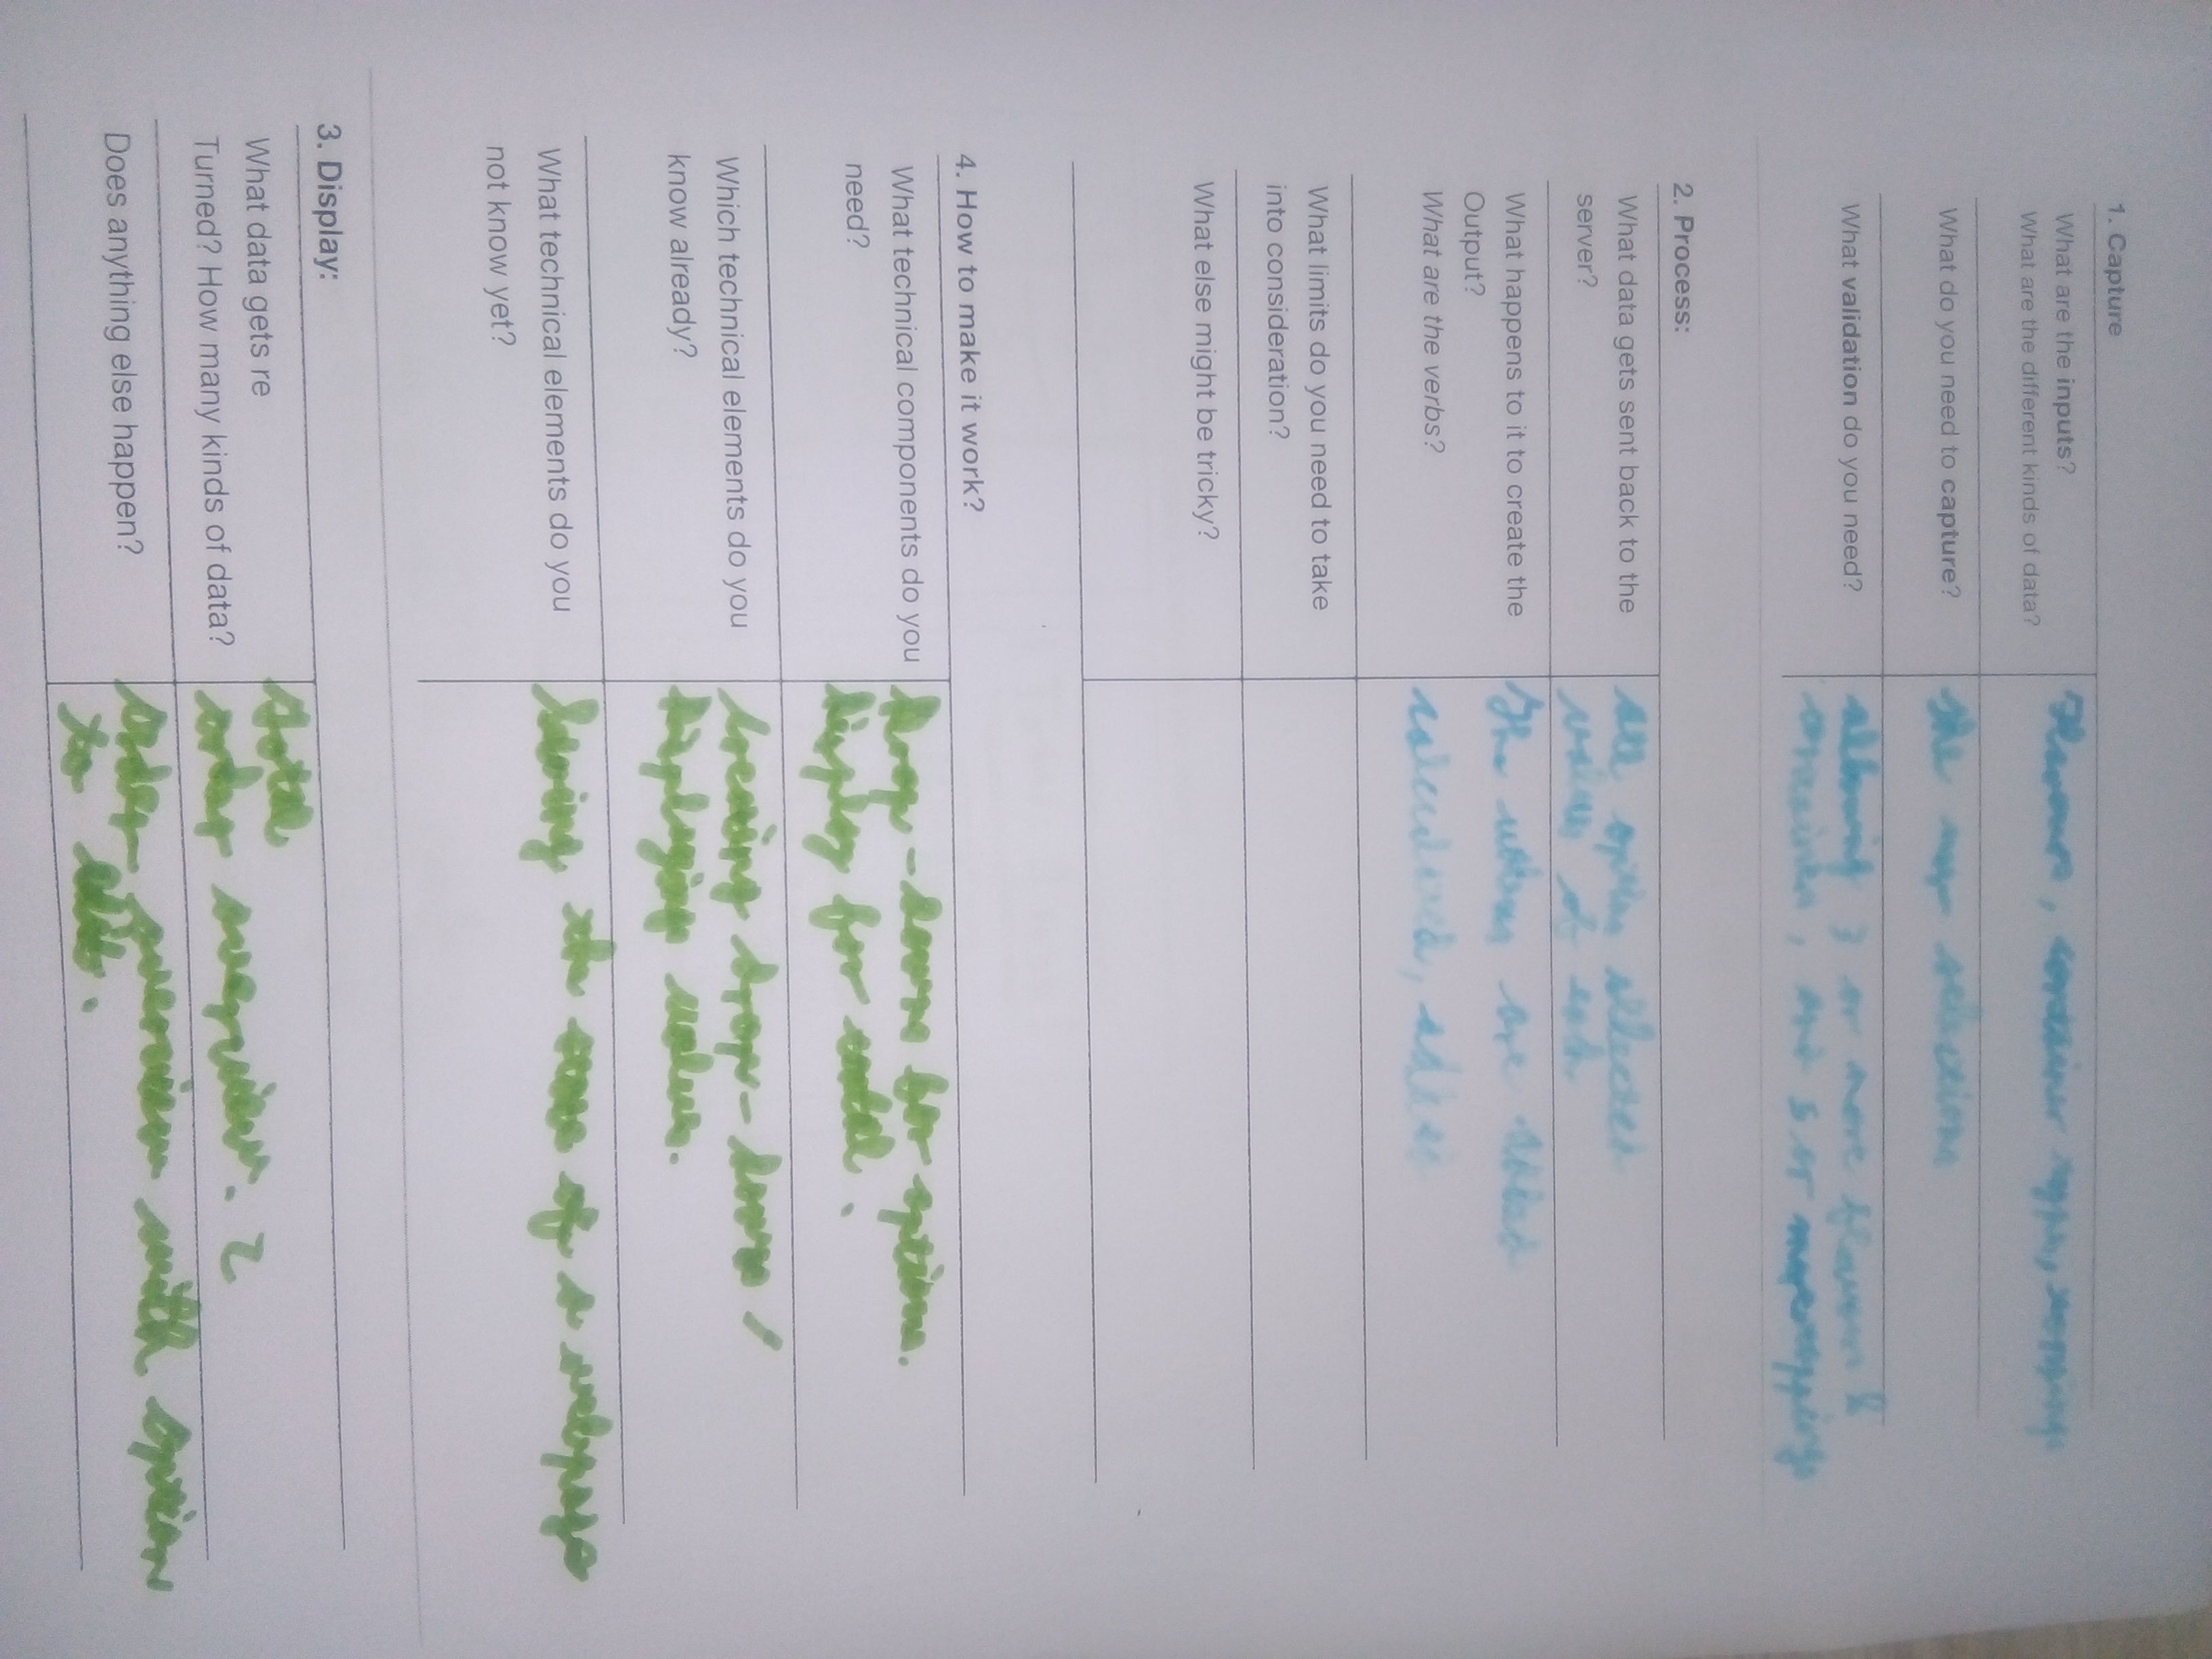 1. Capture
What are the inputs?
What are the different kinds of data?
Flavours, container types, toppings
What do you need to capture?
the user selections
What validation do you need?
allowing 3 or more flavours &
containers, and 5 or more toppings
2. Process:
What data gets sent back to the
server?
all option selected
values of each
What happens to it to create the
Output?
What are the verbs?
The values are added
calculated, added
What limits do you need to take
into consideration?
What else might be tricky?
4. How to make it work?
What technical components do you
need?
Drop-down for options.
Display for total.
Which technical elements do you
know already?
Creating drop-down /
displaying values.
What technical elements do you
not know yet?
Saving the state of a webpage
3. Display:
What data gets re
Turned? How many kinds of data?
total
order overview. 2
Does anything else happen?
Order overview with option
to edit.